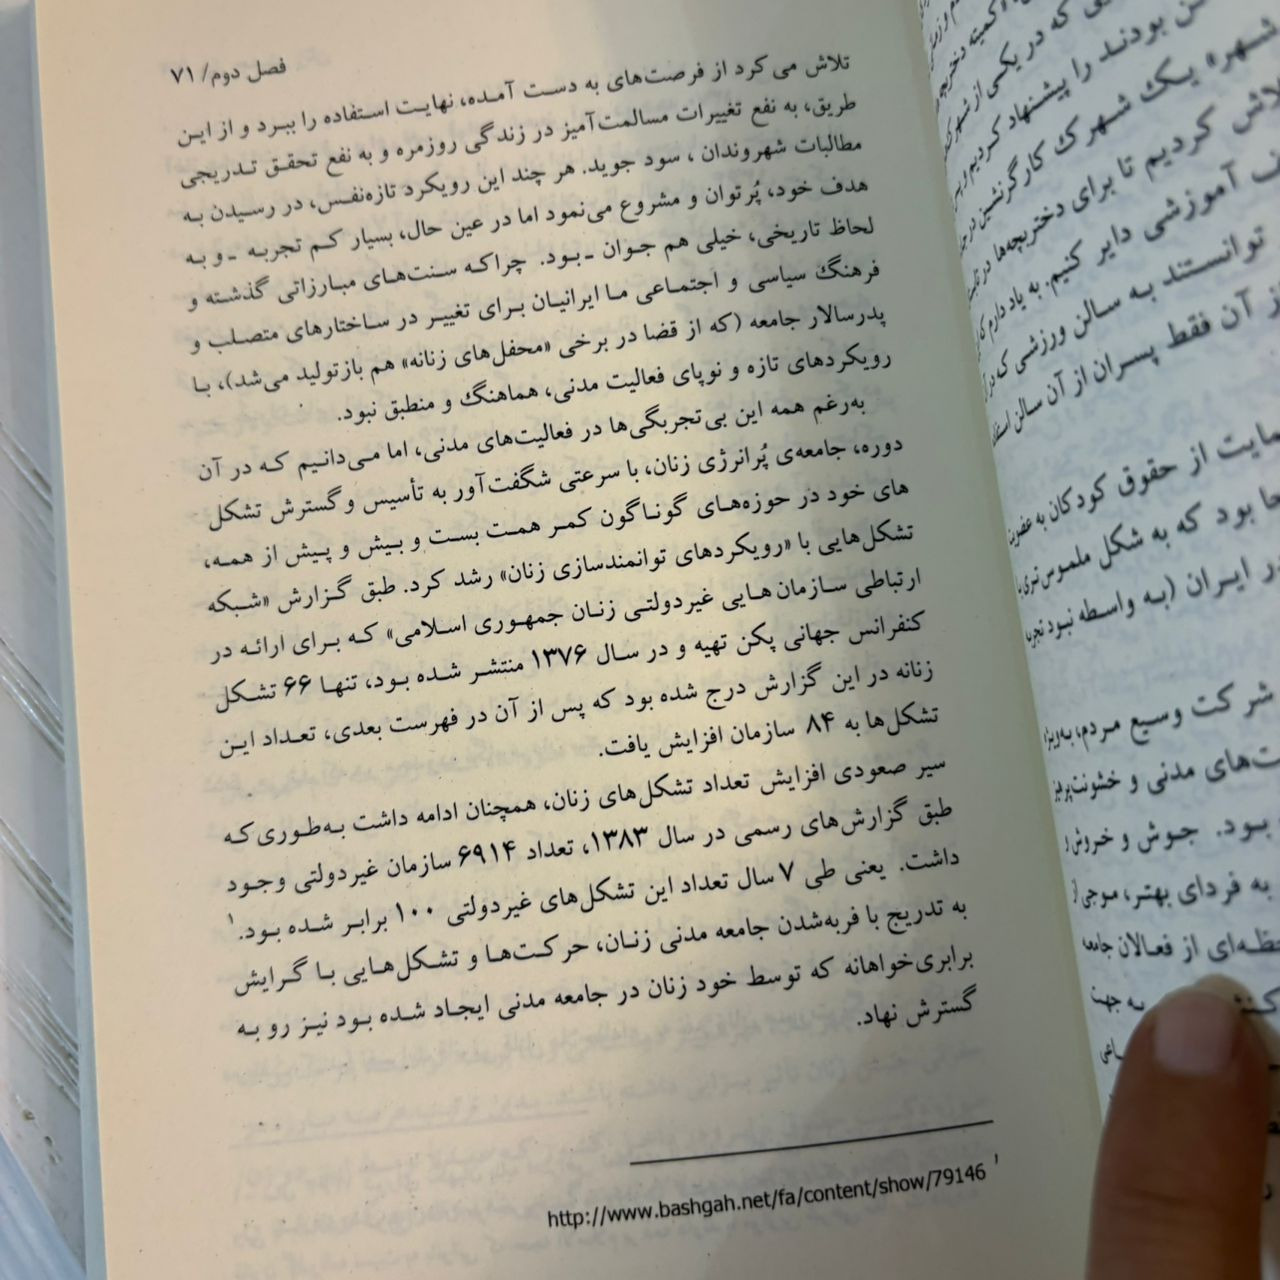 فصل دوم/ ۷۱
تلاش می‌کرد از فرصت‌های به دست آمده، نهایت استفاده را ببرد و از این
طریق، به نفع تغییرات مسالمت‌آمیز در زندگی روزمره و به نفع تحقق تدریجی
مطالبات شهروندان ، سود جوید. هر چند این رویکرد تازه‌نفس، در رسیدن به
هدف خود، پُرتوان و مشروع می‌نمود اما در عین حال، بسیار کم تجربه ـ و به
لحاظ تاریخی، خیلی هم جوان ـ بود. چراکه سنت‌های مبارزاتی گذشته و
فرهنگ سیاسی و اجتماعی ما ایرانیان برای تغییر در ساختارهای متصلب و
پدرسالار جامعه (که از قضا در برخی «محفل‌های زنانه» هم بازتولید می‌شد)، با
رویکردهای تازه و نوپای فعالیت مدنی، هماهنگ و منطبق نبود.
به‌رغم همه این بی‌تجربگی‌ها در فعالیت‌های مدنی، اما می‌دانیم که در آن
دوره، جامعه‌ی پُرانرژی زنان، با سرعتی شگفت‌آور به تأسیس و گسترش تشکل
های خود در حوزه‌های گوناگون کمر همت بست و بیش و پیش از همه،
تشکل‌هایی با «رویکردهای توانمندسازی زنان» رشد کرد. طبق گزارش «شبکه
ارتباطی سازمان‌هایی غیردولتی زنان جمهوری اسلامی» که برای ارائه در
کنفرانس جهانی پکن تهیه و در سال ۱۳۷۶ منتشر شده بود، تنها ۶۶ تشکل
زنانه در این گزارش درج شده بود که پس از آن در فهرست بعدی، تعداد این
تشکل‌ها به ۸۴ سازمان افزایش یافت.
سیر صعودی افزایش تعداد تشکل‌های زنان، همچنان ادامه داشت به‌طوری‌که
طبق گزارش‌های رسمی در سال ۱۳۸۳، تعداد ۶۹۱۴ سازمان غیردولتی وجود
داشت. یعنی طی ۷ سال تعداد این تشکل‌های غیردولتی ۱۰۰ برابر شده بود.۱
به تدریج با فربه‌شدن جامعه مدنی زنان، حرکت‌ها و تشکل‌هایی با گرایش
برابری‌خواهانه که توسط خود زنان در جامعه مدنی ایجاد شده بود نیز رو به
گسترش نهاد.
۱ http://www.bashgah.net/fa/content/show/79146
که در یکی از
بودند را پیشنهاد کردیم
شهر» یک شهرک کارگرنشین در
تلاش کردیم تا برای دختربچه‌ها در
آموزشی دایر کنیم. به یاد دارم
توانستند به سالن ورزشی که در
از آن فقط پسران از آن سالن
حمایت از حقوق کودکان به
بود که به شکل ملموس‌تری
در ایران (به واسطه نبود
شرکت وسیع مردم، به‌ویژه
مدنی و
بود. جوش و خروش
به فردای بهتر، موجی از
از فعالان جامعه
به جهت